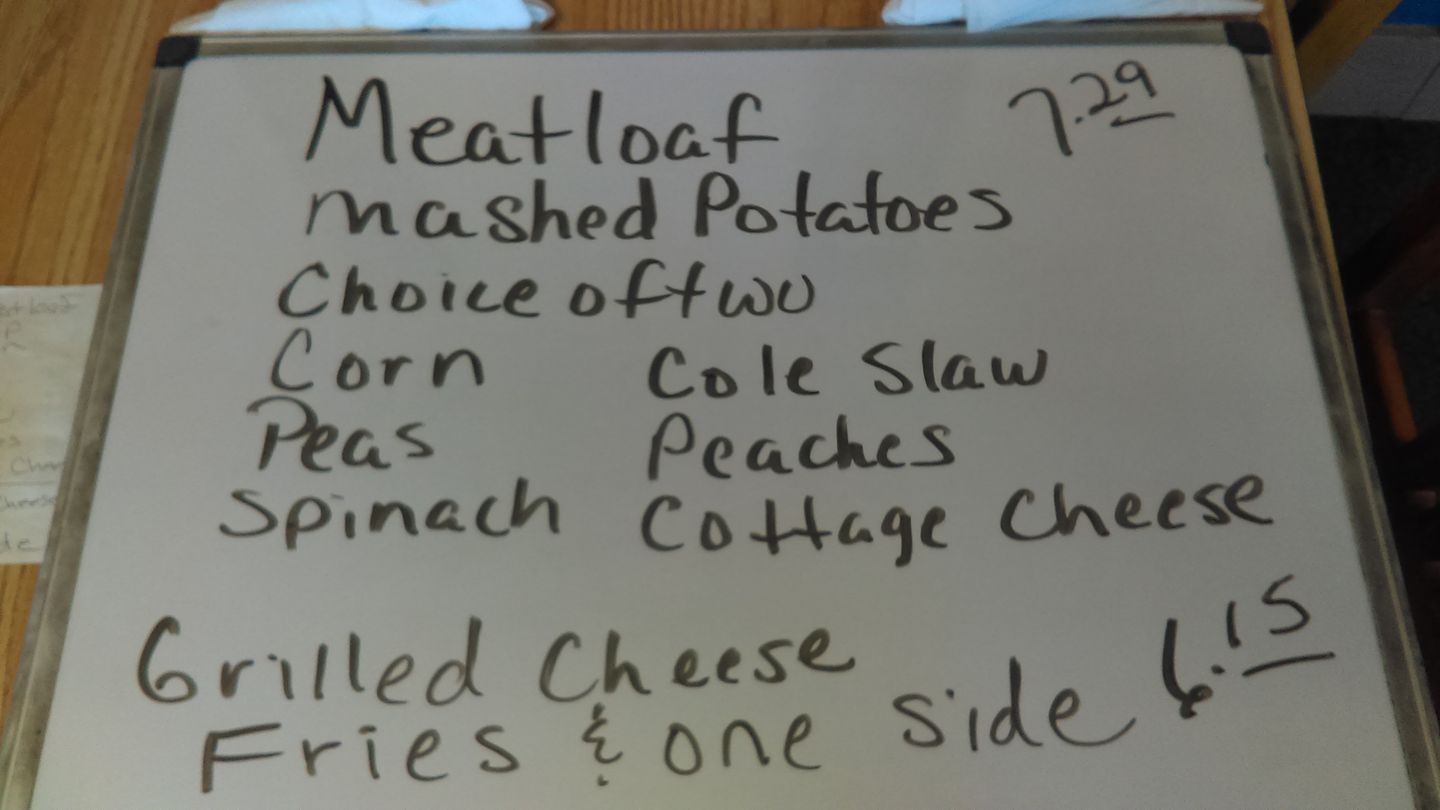 Meatloaf 7.29
mashed Potatoes
Choice of two
Corn Cole Slaw
Peas Peaches
Spinach Cottage Cheese
Grilled Cheese
Fries & one side 6.15